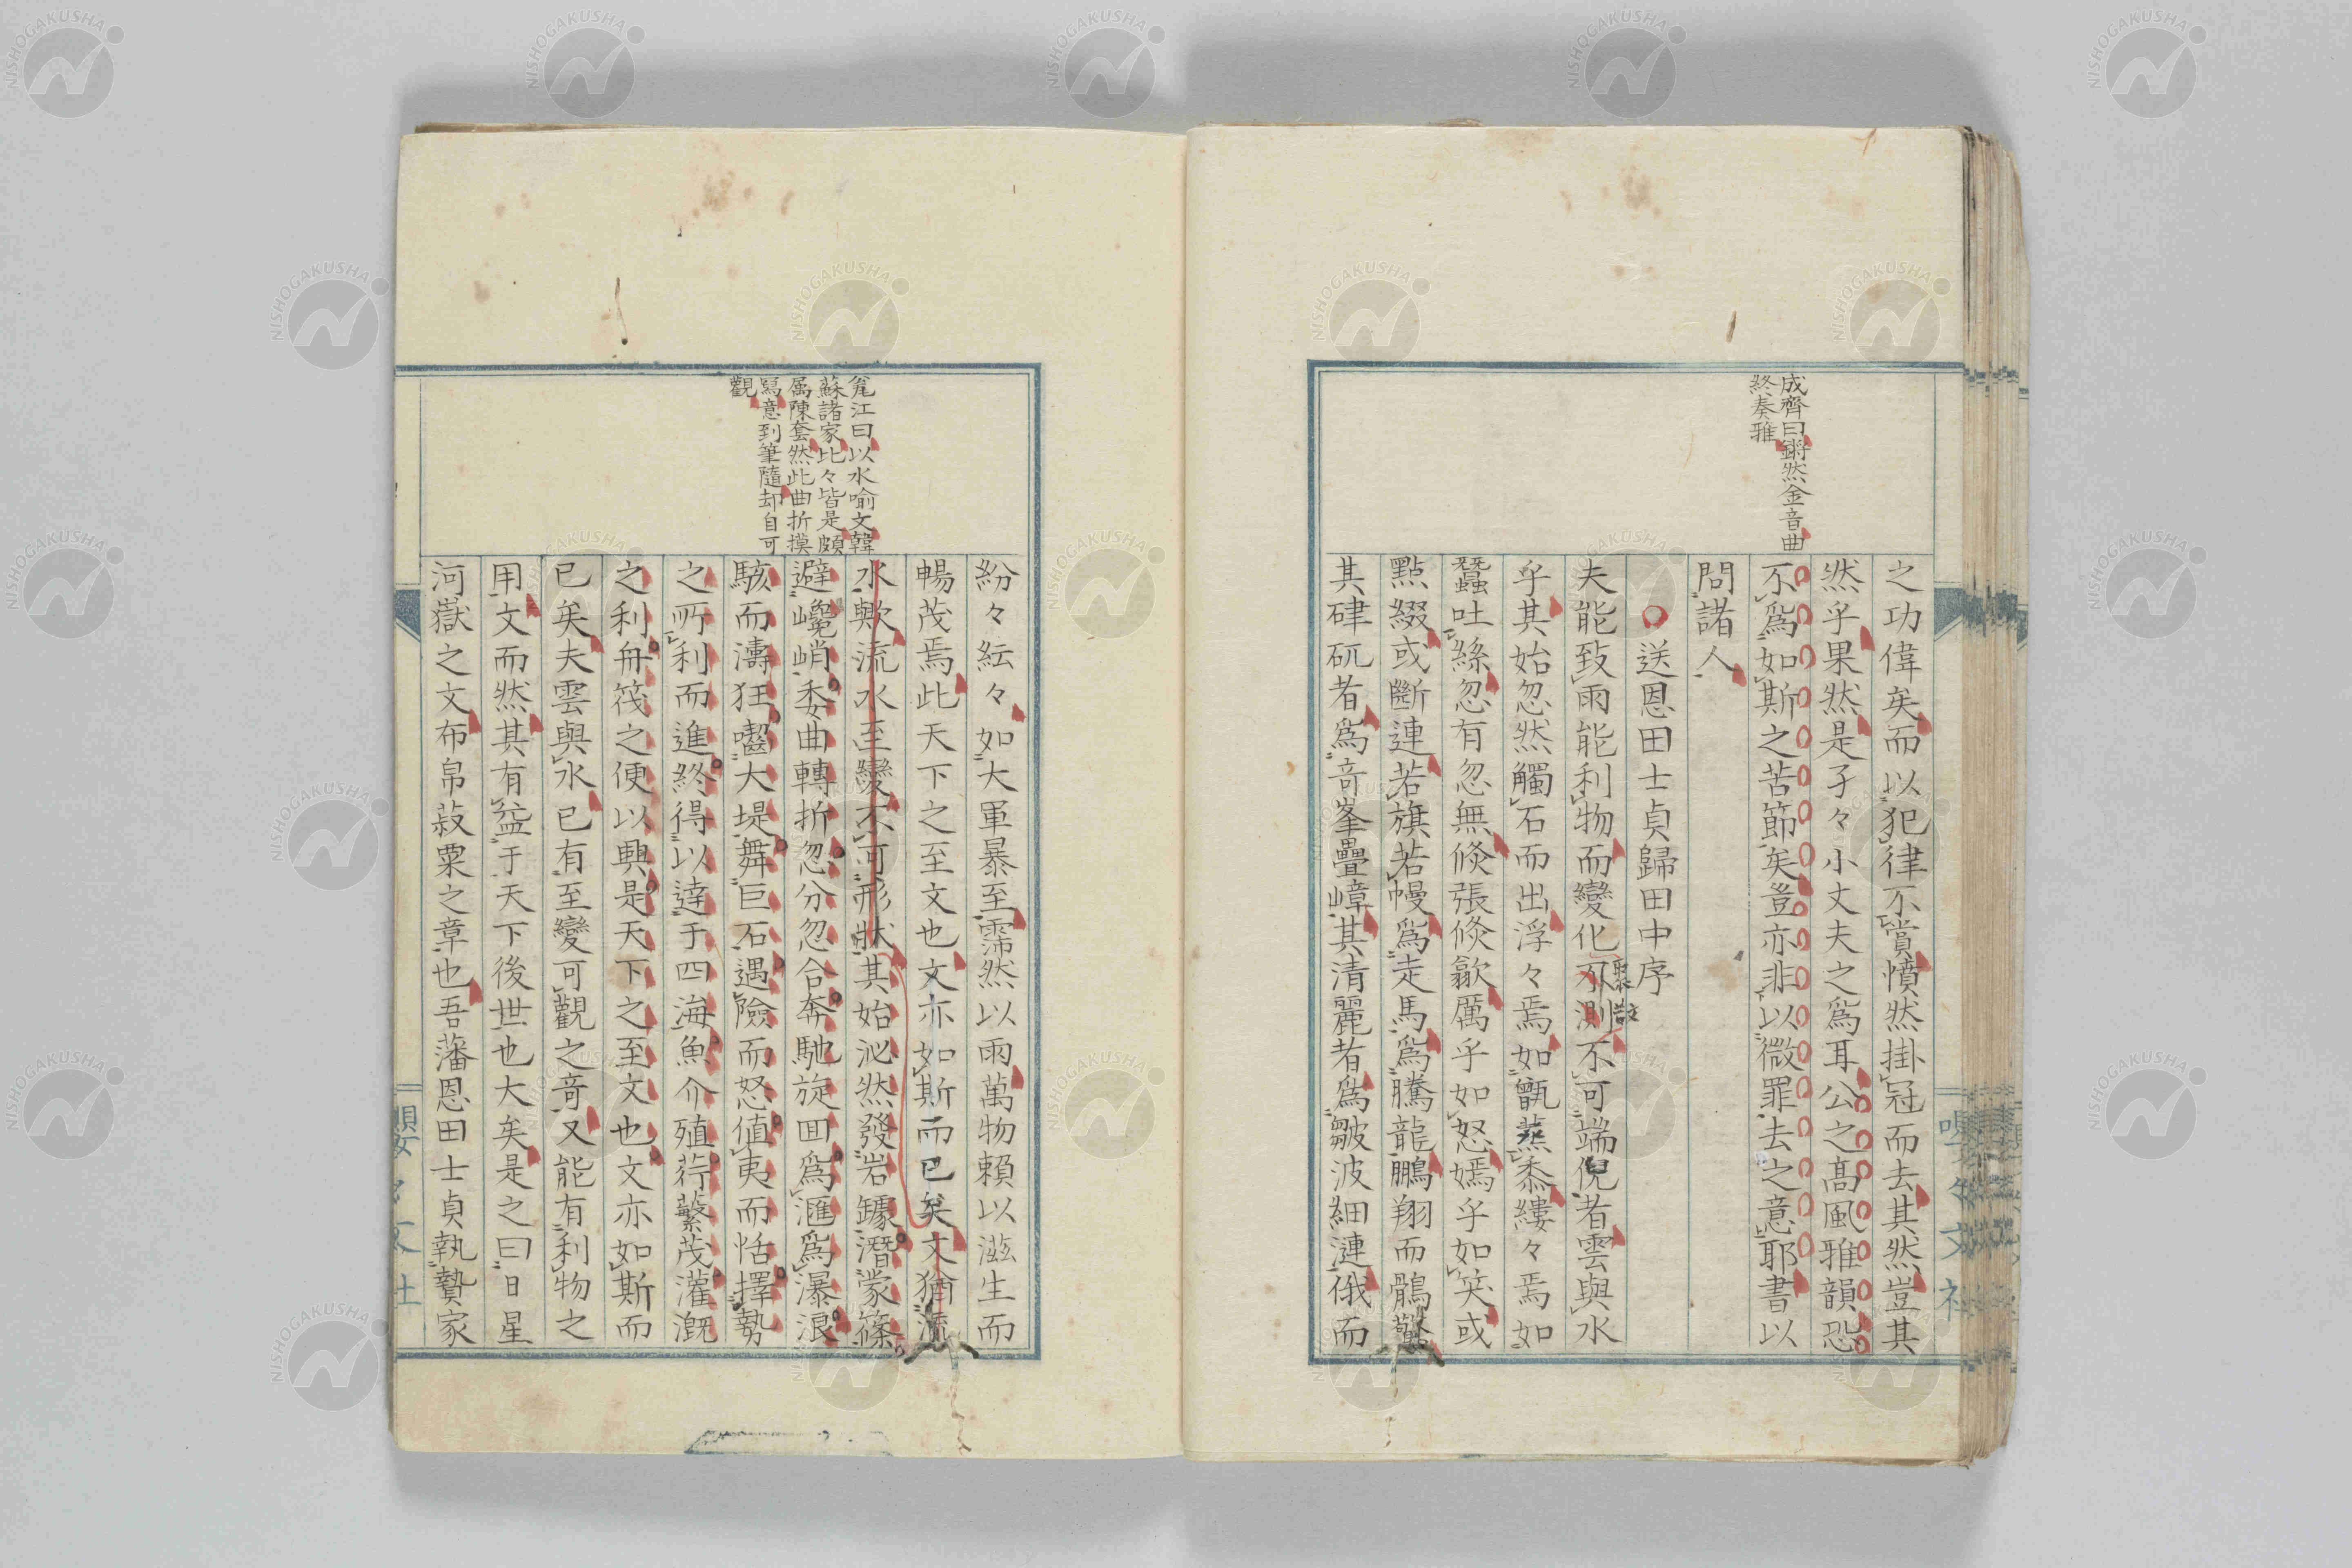 成齊曰鏘然金音曲
終奏雅
之功偉矣而以犯律不賞憤然掛冠而去其然豈其
然乎果然是孑々小丈夫之爲耳公之髙風雅韻恐
不爲如斯之苦節矣豈亦非以微罪去之意耶書以
問諸人
送恩田士貞歸田中序
夫能致雨能利物而變化不測不可端倪者雲與水
乎其始忽然觸石而出浮々焉如甑蒸黍縷々焉如
蠶吐絲忽有忽無倏張倏歙厲乎如怒嫣乎如笑或
點綴或斷連若旗若幔爲走馬爲騰龍鵬翔而鶻驚
其硉矹者爲奇峯疊嶂其清麗者爲皺波細漣俄而
嚶々文社
毚江曰以水喻文韓
蘇諸家比々皆是頗
属陳套然此曲折摸
寫意到筆隨却自可
觀
紛々紜々如大軍暴至霈然以雨萬物賴以滋生而
暢茂焉此天下之至文也文亦如斯而已矣文猶流
水歟流水至變不可形狀其始泌然發岩罅潛蒙篠
避巉峭委曲轉折忽分忽合奔馳旋回爲滙爲瀑浪
駭而濤狂囓大堤舞巨石遇險而怒値夷而恬擇勢
之所利而進終得以達于四海魚介殖荇蘩茂灌漑
之利舟筏之便以興是天下之至文也文亦如斯而
已矣夫雲與水已有至變可觀之奇又能有利物之
用文而然其有益于天下後世也大矣是之曰日星
河嶽之文布帛菽粟之章也吾藩恩田士貞執贄家
NISHOGAKUSHA